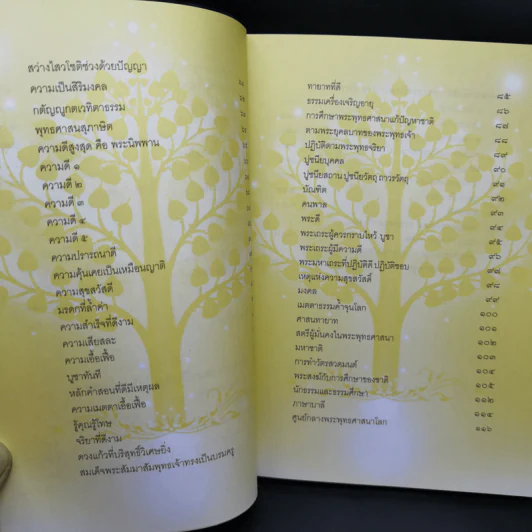 สว่างไสวโชติช่วงด้วยปัญญา
ความเป็นสิริมงคล
กตัญญูกตเวทิตาธรรม
พุทธศาสนสุภาษิต
ความดีสูงสุด คือ พระนิพพาน
ความดี ๑
ความดี ๒
ความดี ๓
ความดี ๔
ความดี ๕
ความปรารถนาดี
ความคุ้นเคยเป็นเหมือนญาติ
ความสุขสวัสดี
มรดกที่ล้ำค่า
ความสำเร็จที่ดีงาม
ความเสียสละ
ความเอื้อเฟื้อ
บูชาทันที
หลักคำสอนที่ดีมีเหตุผล
ความเมตตาเอื้อเฟื้อ
รู้คุณรู้โทษ
จริยาที่ดีงาม
ดวงแก้วที่บริสุทธิ์วิเศษยิ่ง
สมเด็จพระสัมมาสัมพุทธเจ้าทรงเป็นบรมครู
ทายาทที่ดี ๘๕
ธรรมเครื่องเจริญอายุ ๘๖
การศึกษาพระพุทธศาสนาแก้ปัญหาชาติ ๘๗
ตามพระยุคลบาทของพระพุทธเจ้า ๘๘
ปฏิบัติตามพระพุทธจริยา ๘๙
ปูชนียบุคคล ๙๐
ปูชนียสถาน ปูชนียวัตถุ ถาวรวัตถุ ๙๑
บัณฑิต ๙๒
คนพาล ๙๓
พระดี ๙๔
พระเถระผู้ควรกราบไหว้ บูชา ๙๕
พระเถระผู้มีความดี ๙๖
พระมหาเถระที่ปฏิบัติดี ปฏิบัติชอบ ๙๗
เหตุแห่งความสุขสวัสดิ์ ๙๘
มงคล ๙๙
เมตตาธรรมค้ำจุนโลก ๑๐๐
ศาสนทายาท ๑๐๑
สตรีผู้มั่นคงในพระพุทธศาสนา ๑๐๒
มหาชาติ ๑๐๓
การทำวัตรสวดมนต์
พระสงฆ์กับการศึกษาของชาติ ๑๐๕
นักธรรมและธรรมศึกษา
ภาษาบาลี
ศูนย์กลางพระพุทธศาสนาโลก